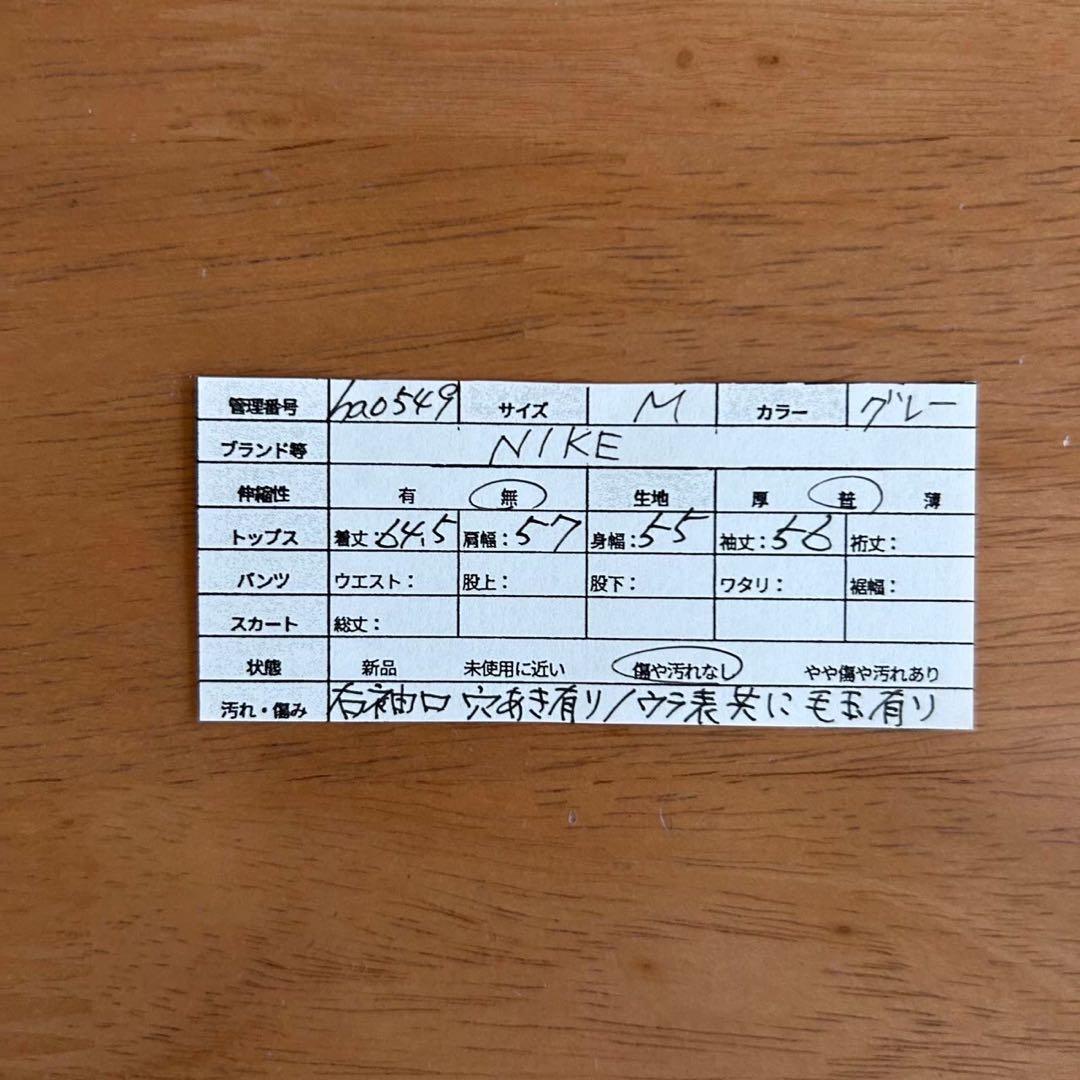 管理番号 ha0549 サイズ M カラー グレー
ブランド等 NIKE
伸縮性 有 無 生地 厚 普 薄
トップス 着丈:64.5 肩幅:57 身幅:55 袖丈:56 裄丈:
パンツ ウエスト: 股上: 股下: ワタリ: 裾幅:
スカート 総丈:
状態 新品 未使用に近い 傷や汚れなし やや傷や汚れあり
汚れ・傷み 右袖口 穴あき有り/ウラ表共に毛玉有り